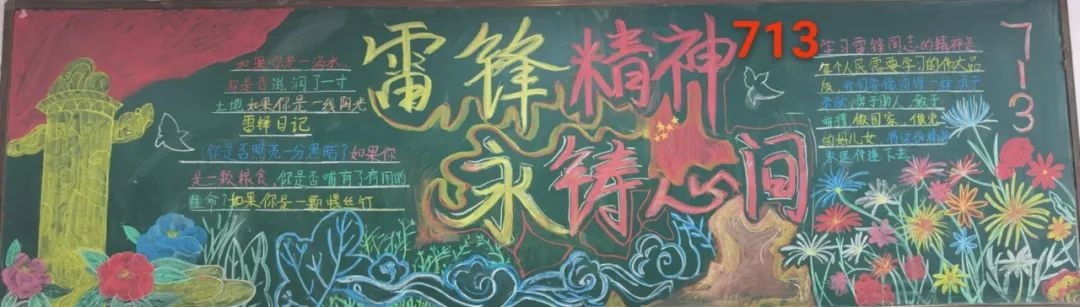 如果你是一滴水,
你是否滋润了一寸
土地如果你是一线阳光
雷锋日记
你是否照亮一分黑暗?如果你
是一颗粮食,你是否哺育了有用的
生命?如果你是一颗螺丝钉
雷锋精神
永铸心间
713
学习雷锋同志的精神是
每个人民需要学习的伟大品
质 我们要像雷锋一样勇于
奉献 乐于助人 敢于
做国家、做党
的好儿女
永远传递下去
713